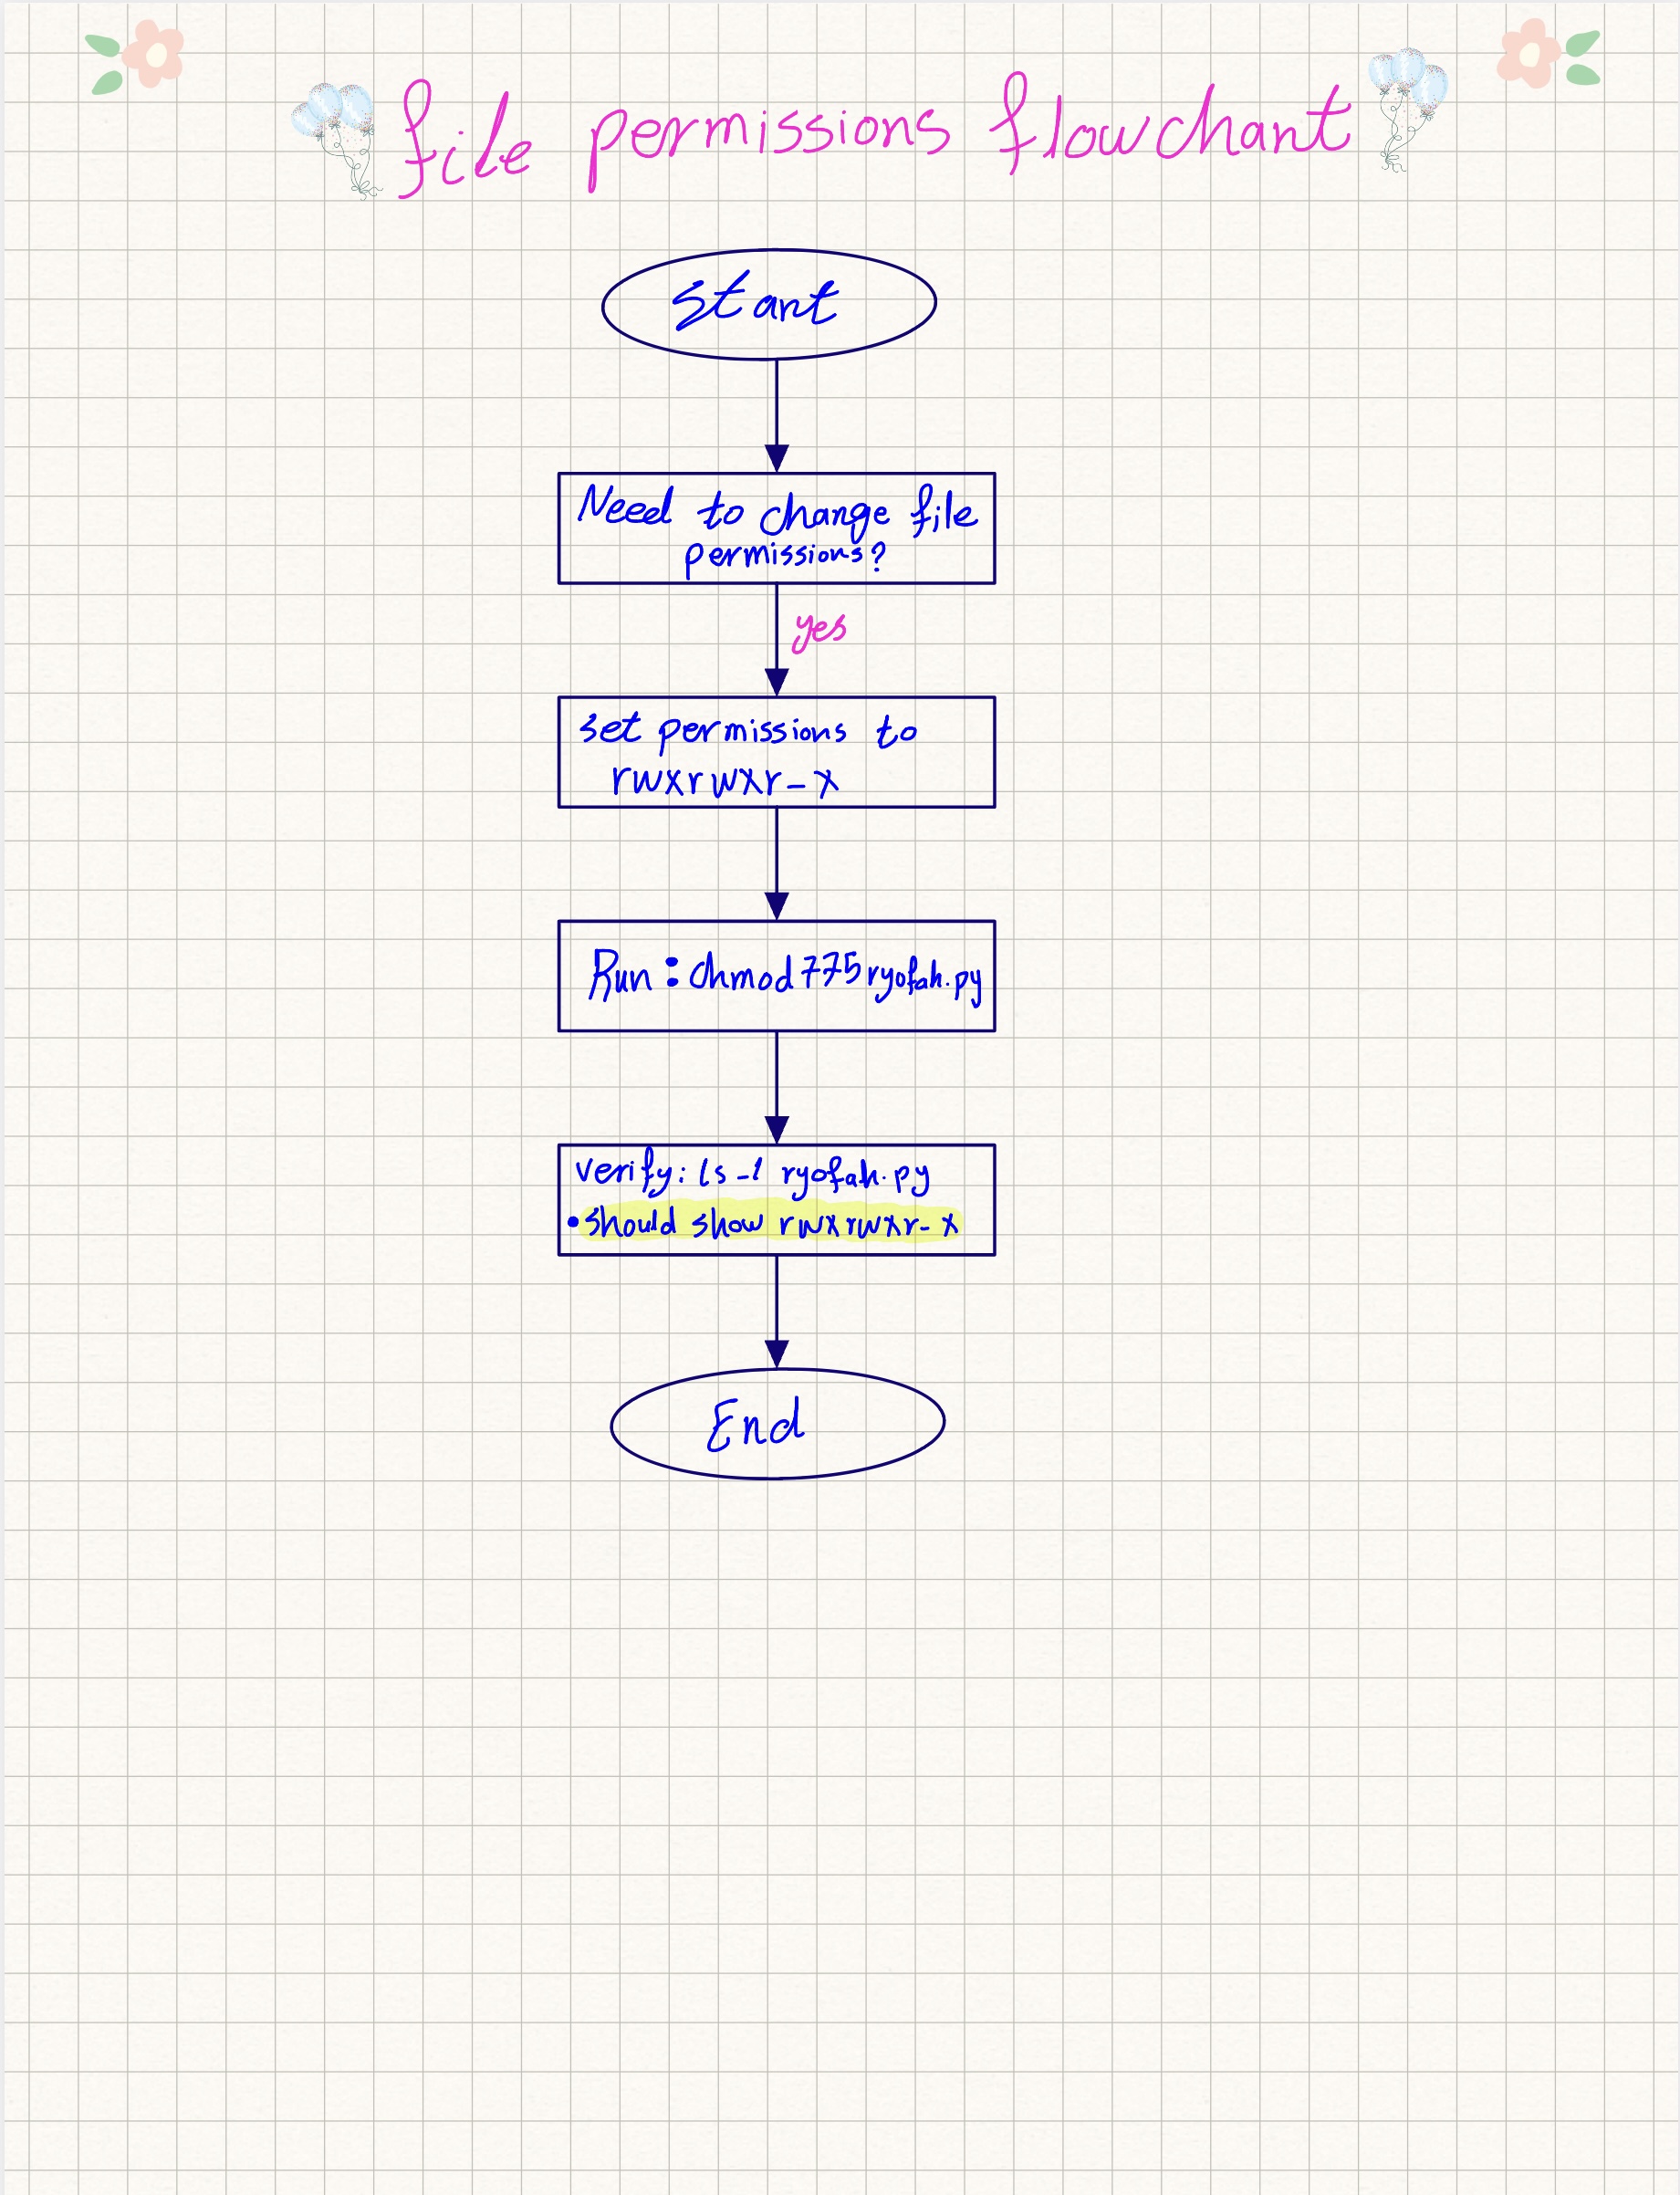 file permissions flowchart
start
Need to change file
permissions?
yes
set permissions to
rwxrwxr-x
Run : chmod 775 ryofah.py
verify: ls -l ryofah.py
• should show rwxrwxr-x
End